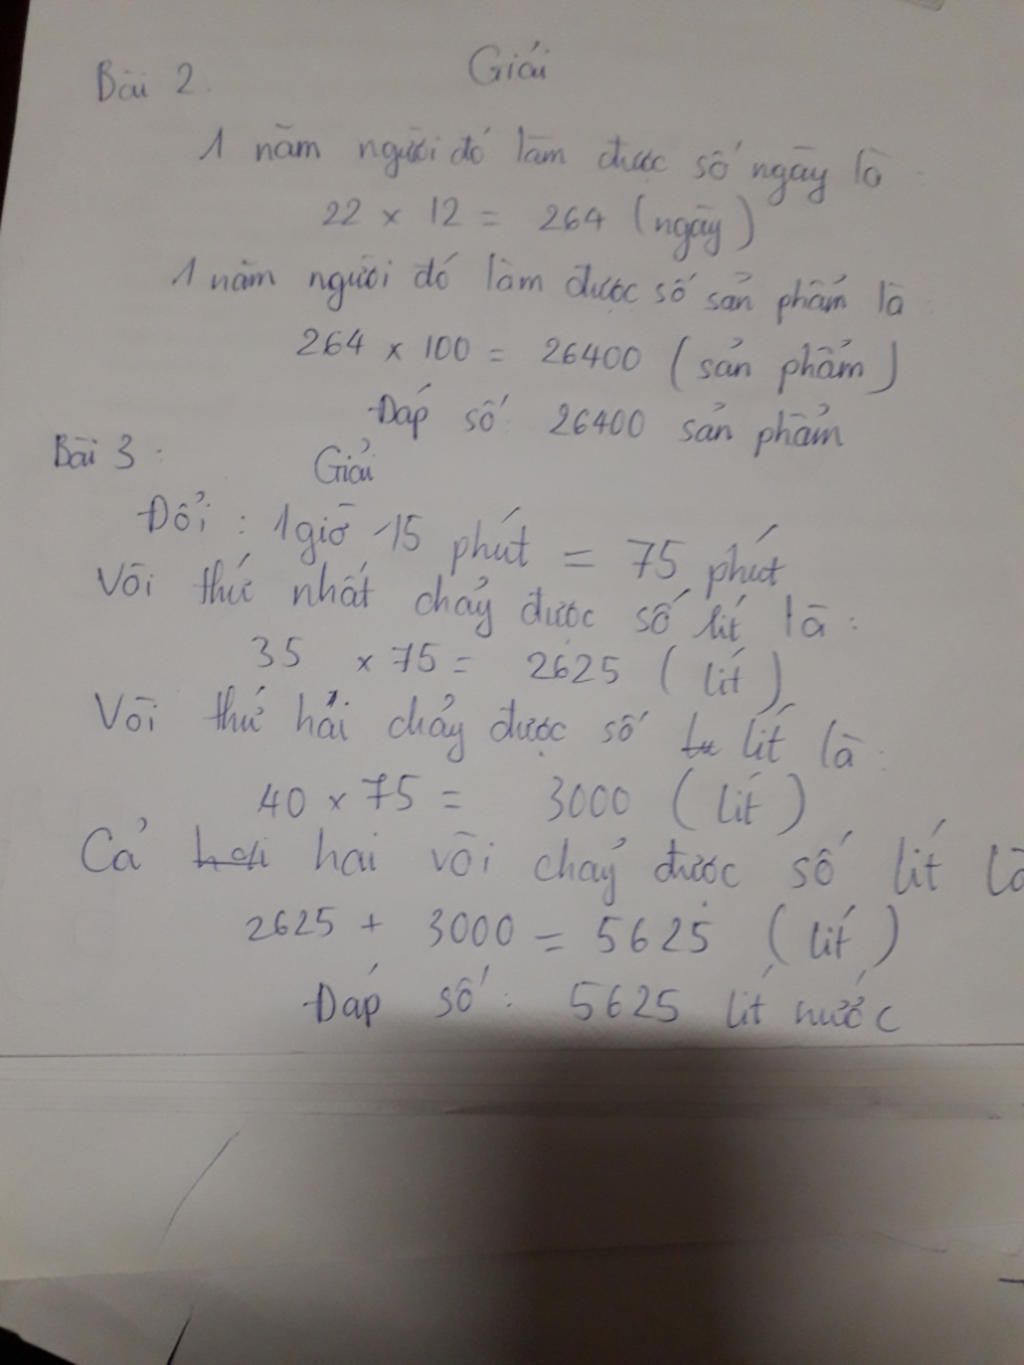 Bài 2. Giải
1 năm người đó làm được số ngày là:
22 x 12 = 264 (ngày)
1 năm người đó làm được số sản phẩm là
264 x 100 = 26400 (sản phẩm)
Đáp số: 26400 sản phẩm
Bài 3: Giải
Đổi: 1 giờ 15 phút = 75 phút
Vòi thứ nhất chảy được số lít là:
35 x 75 = 2625 (lít)
Vòi thứ hai chảy được số lít là:
40 x 75 = 3000 (lít)
Cả hai vòi chảy được số lít là
2625 + 3000 = 5625 (lít)
Đáp số: 5625 lít nước